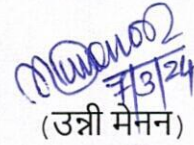 7/3/24
(उन्नी मेनन)